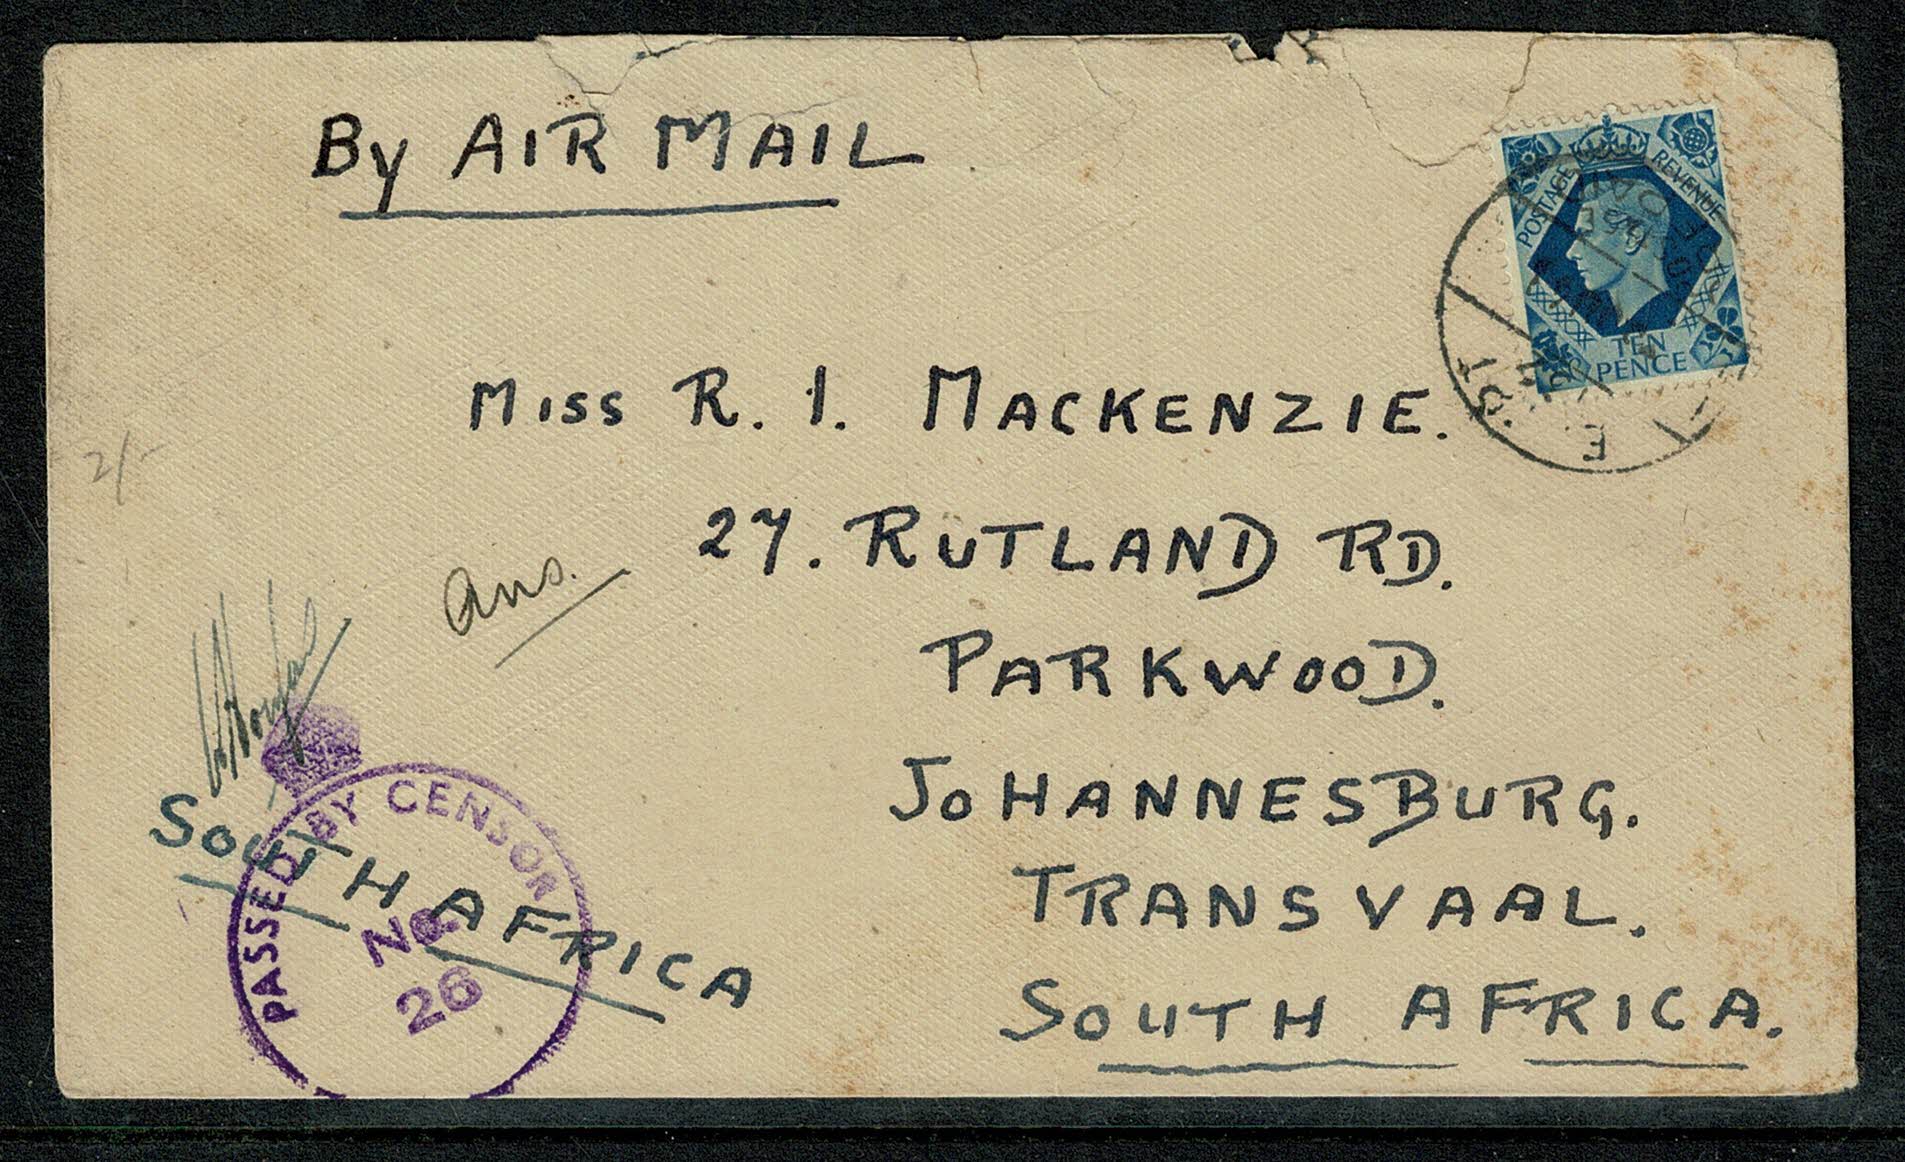 By AIR MAIL
POSTAGE REVENUE
TEN
PENCE
MISS R. I. MACKENZIE.
27. RUTLAND RD.
PARKWOOD.
JOHANNESBURG.
TRANSVAAL.
SOUTH AFRICA.
2/-
Ans.
SOUTH AFRICA
PASSED BY CENSOR
No.
26